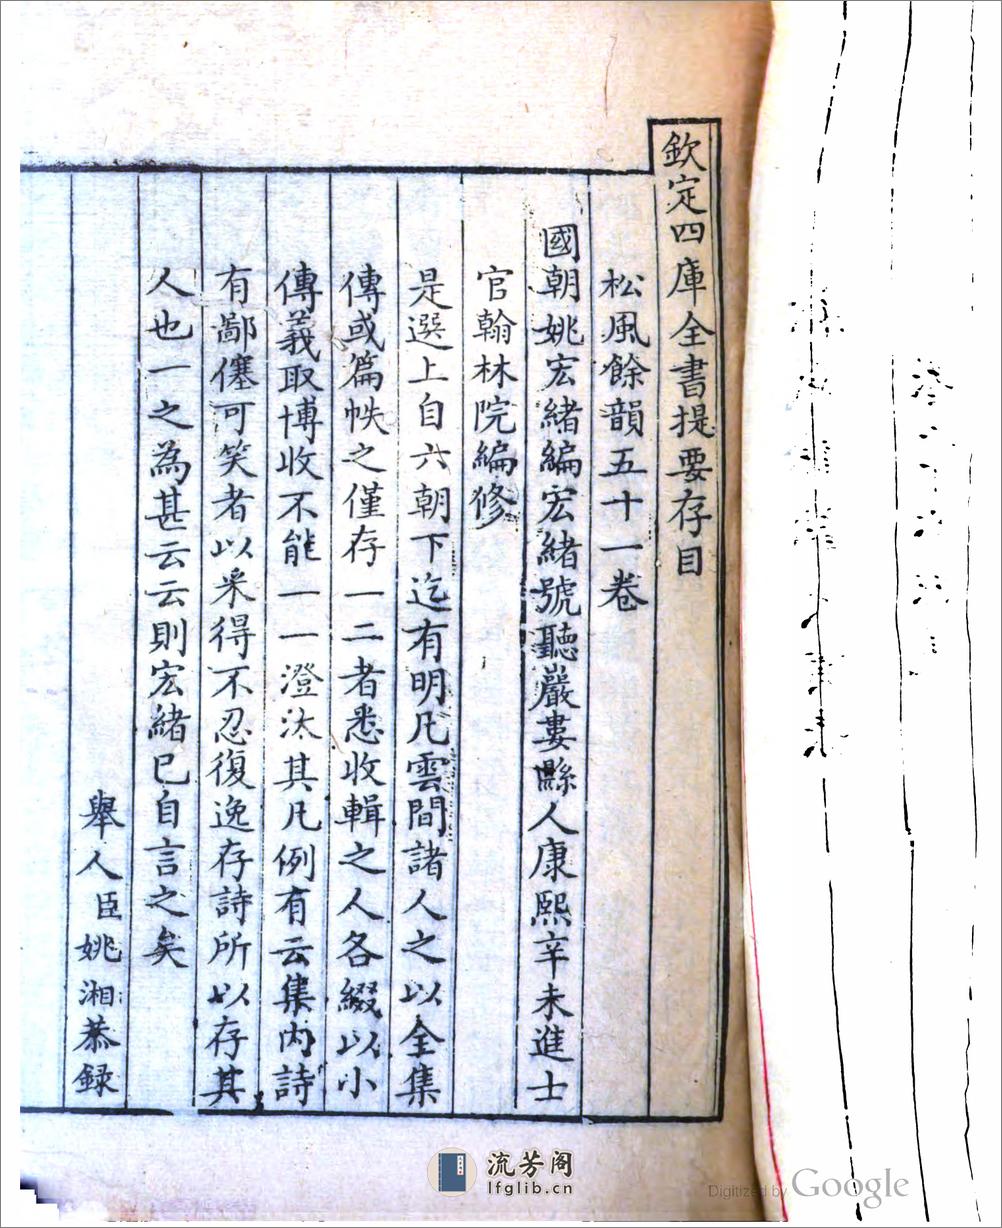 欽定四庫全書提要存目
松風餘韻五十一卷
國朝姚宏緒編宏緒號聽巖婁縣人康熙辛未進士
官翰林院編修
是選上自六朝下迄有明凡雲間諸人之以全集
傳或篇帙之僅存一二者悉收輯之人各綴以小
傳義取博收不能一一澄汰其凡例有云集內詩
有鄙僿可笑者以采得不忍復逸存詩所以存其
人也一之為甚云云則宏緒已自言之矣
舉人臣姚湘恭錄
流芳阁
lfglib.cn
Digitized by Google